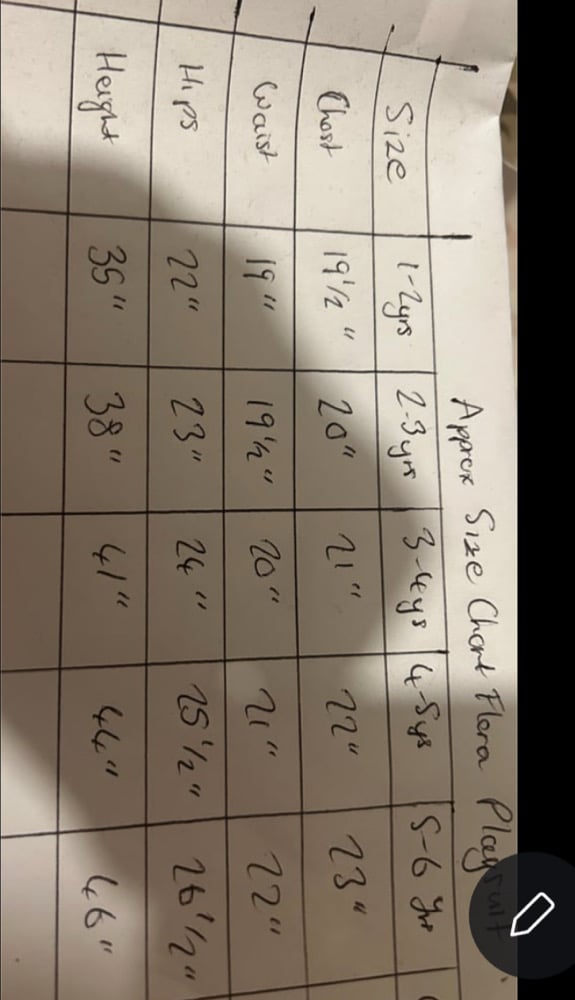 Approx Size Chart Flora Playsuit
Size 1-2yrs 2-3yrs 3-4ys 4-5ys 5-6 yr
Chest 19 1/2" 20" 21" 22" 23"
Waist 19" 19 1/2" 20" 21" 22"
Hips 22" 23" 24" 25 1/2" 26 1/2"
Height 35" 38" 41" 44" 46"